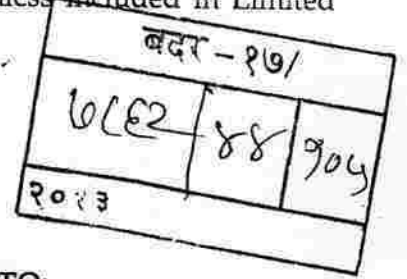 included in Limited
बदर -१७/
७८६२ ४४ १०५
TO: